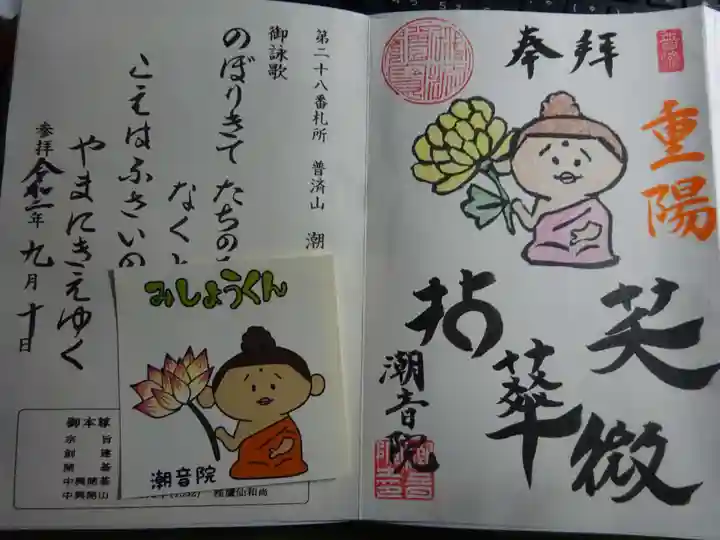 第二十八番札所 普済山 潮
御詠歌
のぼりきて たちの
なくと
こえはふさいの
やまにきえゆく
参拝 令和二年 九月十日
みしょうくん
潮音院
御本尊
宗旨
創建
開基
中興開基
中興開山
奉拝
重陽
拈華
微笑
潮音院